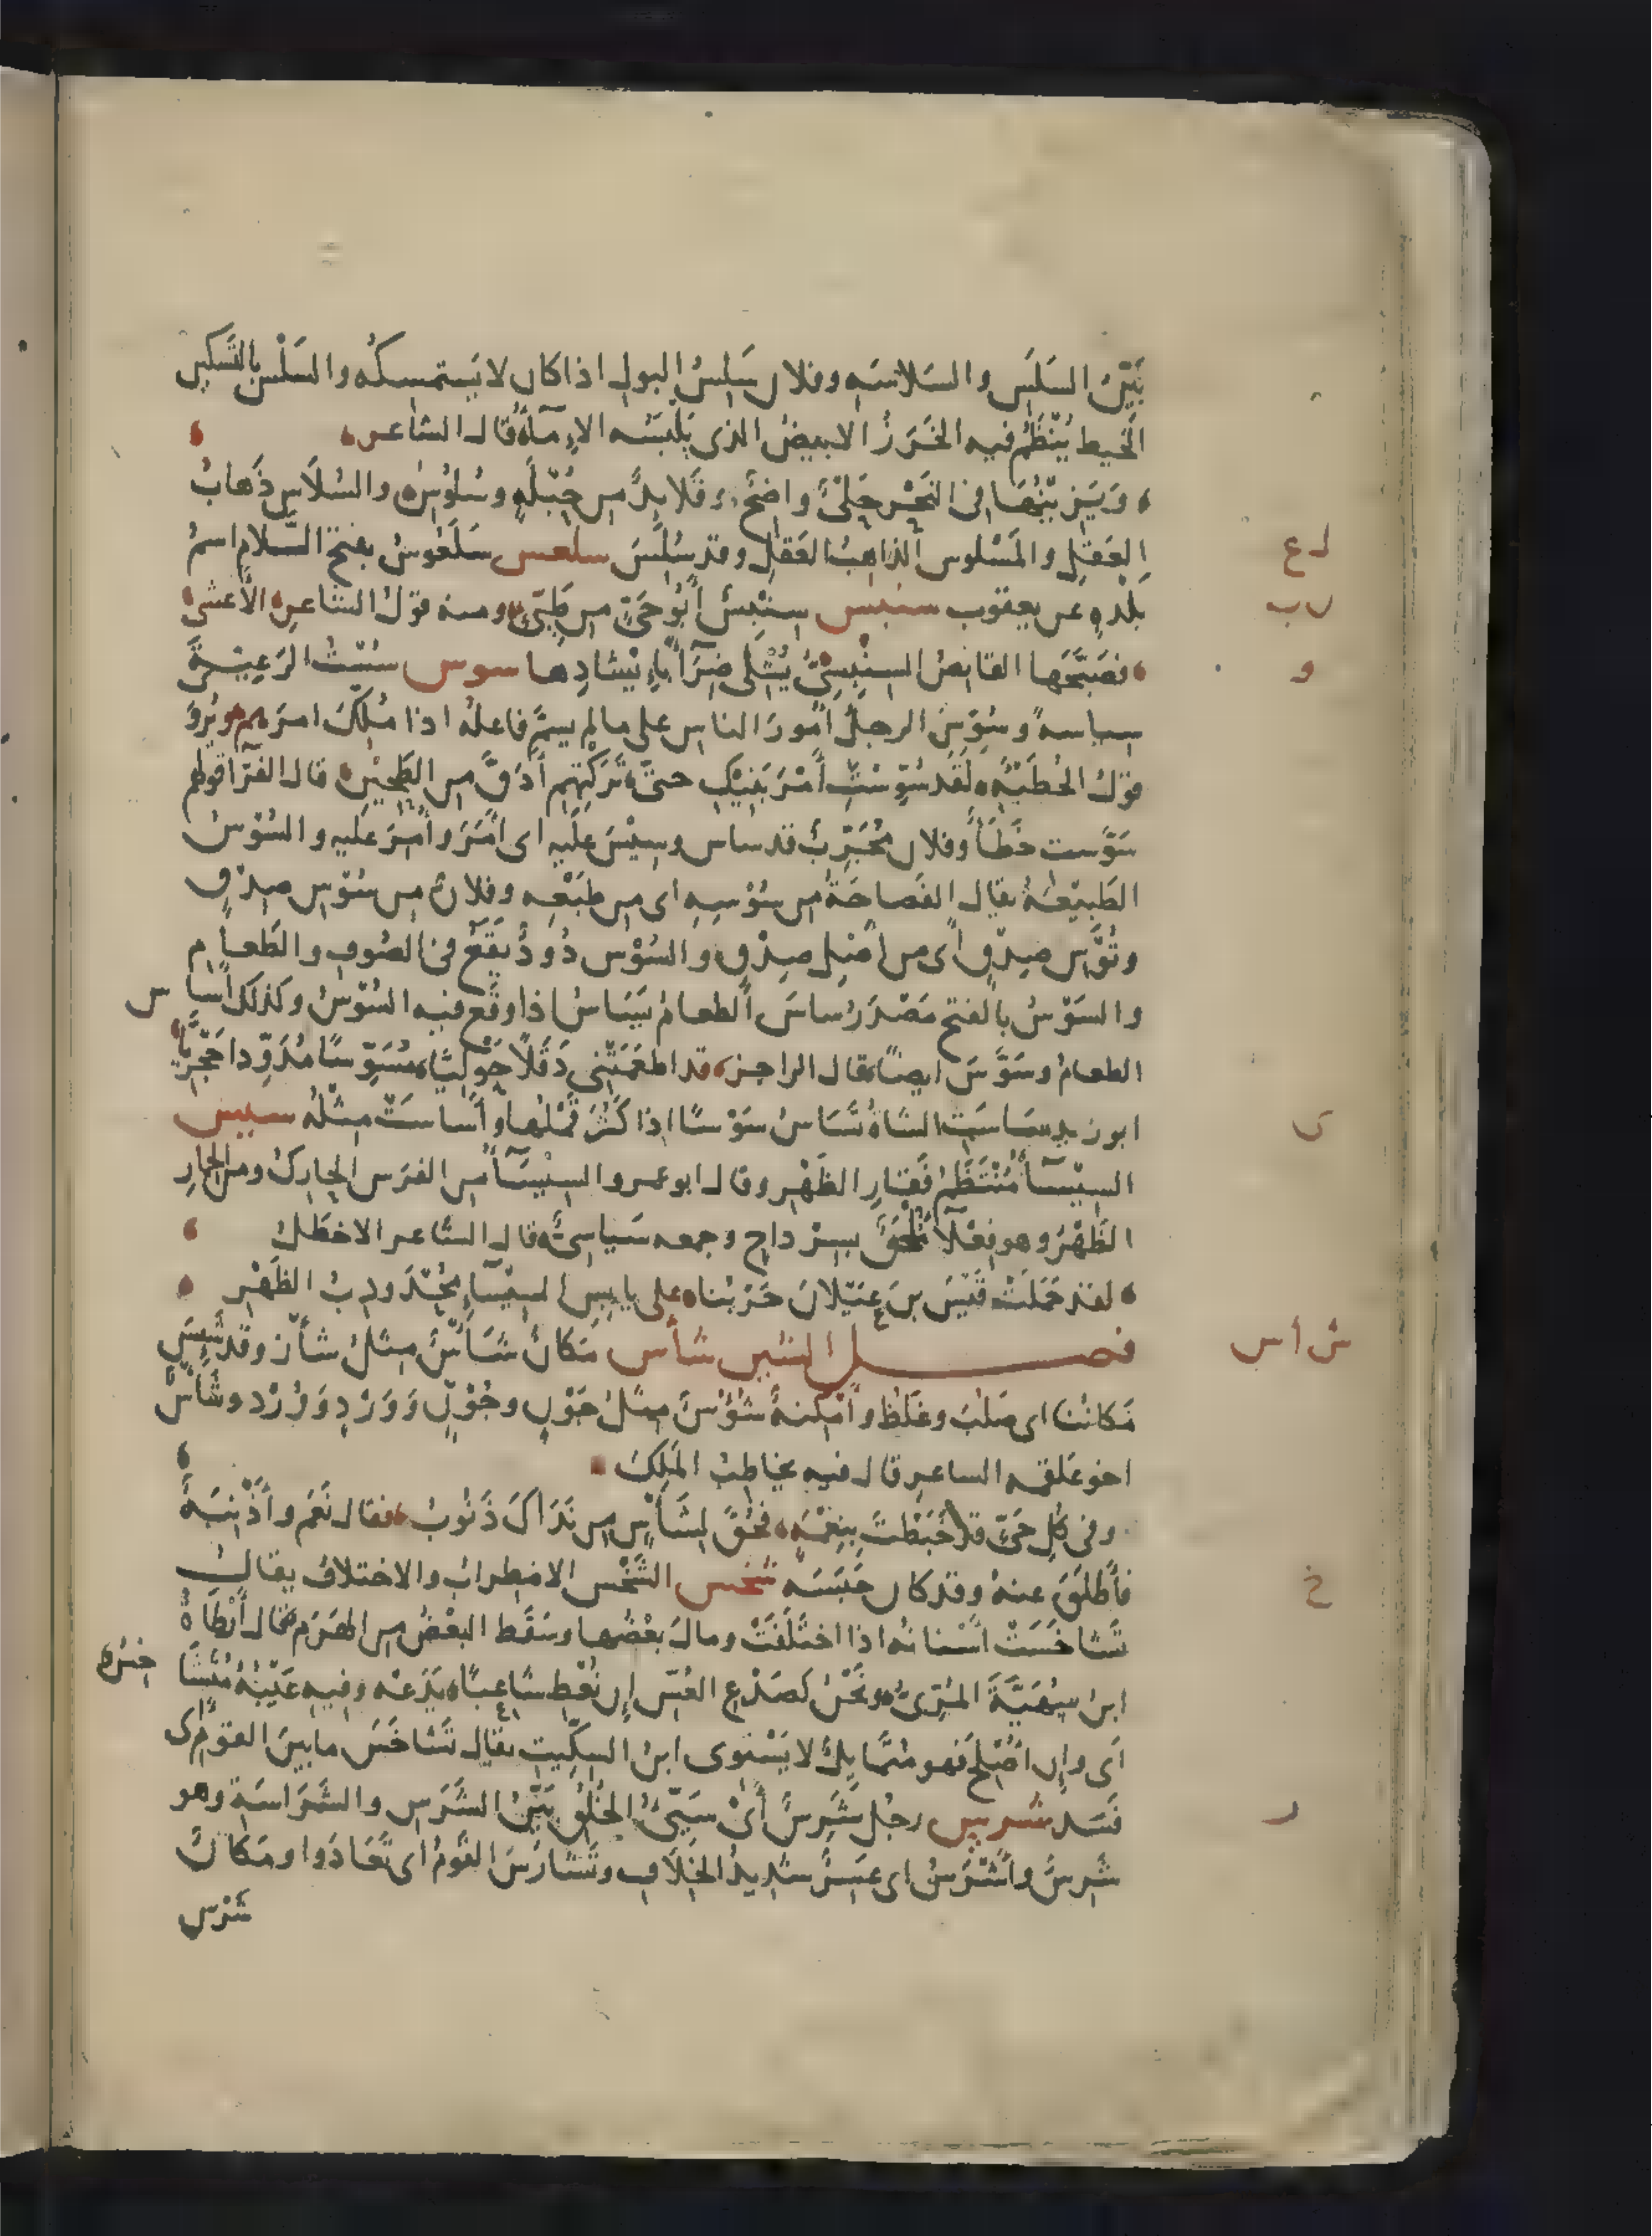 بَيّنُ السَلَسِ والسَلاسَةِ وفلان سَلِسُ البول اذا كان لا يَستمسِكُه والسَلْسُ بالتَسكين
الخَيط يُنْظَمُ فيه الخَرَزُ الابيضُ الذى يَلْبَسُه الاِمآءُ قال الشاعر
ويَزينُها فى النَحْرِ حَلْىٌ واضِحٌ وقَلائِدٌ من حُبْلَةٍ وسُلُوسِ والسُلاَس ذَهابُ
العَقلِ والمَسْلوس الذاهبُ العَقلِ وقد سُلِسَ سلعس سَلَعُوسُ بفتح اللام اسمُ
بلدةٍ عن يعقوب سنبس سِنْبِسُ أبُو حَىّ من طَيّئٍ ومنه قولُ الشاعر الأعشى
فصَبَّحَها القانِصُ السِنْبِسِىُّ يُشْلِى ضِرَآءً بإيْسادِها سوس سُسْتُ الرَعيّةَ
سِياسةً وسُوِّسَ الرجلُ اُمُورَ الناس على ما لم يسمَّ فاعلُه اذا مُلِّكَ امرَهم ويُروَى
قولُ الحُطَيْئَة لَقَد سُوِّسْتِ أَمْرَ بَنيْكِ حتّى تَرَكْتِهِم أدَقَّ من الطَحِيْنِ قال الفَرّآ قولهم
سَوَّست خَطَأٌ وفلان مُجَرَّبٌ قد ساس وسِيْسَ عَلَيه اى اَمَرَ واُمِرَ عليه والسُوْسُ
الطَبِيْعَةُ يقال الفَصاحَةُ من سُوْسِهِ اى من طَبْعِه وفلانٌ من سُوْسِ صِدْقٍ
وتُوْسِ صِدْقٍ اى من اَصْلِ صِدْقٍ والسُوْس دُوْدٌ يَقَعُ فى الصُوفِ والطَعام
والسَوْسُ بالفتح مَصْدَرُ ساسَ الطعامُ يَسَاسُ اذا وقع فيه السُوْسُ وكذلك اَساس
الطعامُ وسَوَّسَ ايضًا قال الراجز قد اطعَمَتْنِى دَقَلًا حَوْلِيَّا مُسَوِّسًا مُدَوِّدا حَجْرِيّا
ابو زيد سَاسَتِ الشاةُ تَسَاسُ سَوْسًا اذا كَثُرَ قَمْلُها وأَساسَتْ مِثْلُه سيس
السِيْسَآءُ مُنْتَظَمُ فَقارِ الظَهْرِ وقال ابو عمرو السِيْسَآءُ من الفرَس الحارِكُ ومن الحِمارِ
الظَهْرُ وهو فِعْلَآءُ مُلْحَقٌ بسِرْداحٍ وجمعه سَياسِىُّ قال الشاعر الاخطل
لقد حَمَلَتْ قَيْسَ بنَ عَيْلانَ حَرْبُنا على يابِسِ السِيْسَآءِ مُحْدَودِبُ الظَهْرِ
فصل الشين شأس مَكانٌ شَأْسٌ مِثلُ شأْزٍ وقد شَئِسَ
مَكانُنا اى صَلُبَ وغَلُظَ واَمْكِنةٌ شُوْسٌ مثلُ جَوْنٍ وجُوْنٍ ووَرْدٍ ووُرْدٍ وشَأسٌ
اخو علقمه الشاعر قال فيه يخاطِبُ المَلِكَ
وفى كُلِّ حَىّ قد خَبَطْتَ بنِعْمَةٍ فحُقَّ لِشَأْسٍ من نَدَاكَ ذَنُوبُ فقال نَعَم وأَذْنِبَةٌ
فأَطلَقَ عنهُ وقد كان حَبَسَهُ شخس الشَّخْس الاضطرابُ والاختلافُ يقال
تَشاخَسَتْ اَسْنانُه اذا اختَلَفَتْ ومالَ بَعْضُها وسَقَط البعْضُ من الهَرَم قال أَرْطَاةُ
ابنُ سُهَيّةَ المُرِّىُّ ونَحْنُ كصَدْعِ العُسِّ إِن يُعْطِ شاعِبًا يَدَعْهُ وفيه عَيْبُهُ مُتَشَاخِسُ
اَى وان اُصْلِحَ فهو مُتَمايِلٌ لا يَسْتوِى ابن السِكّيت يقال تَشاخَسَ ما بينَ القَوْمِ اى
فَسَدَ شرس رجُل شَرِسٌ أَىْ سَيّئُ الخُلُقِ بَيّنُ الشَرَس والشَرَاسَةِ وهو
شَرِسٌ واَشْرَسُ اى عَسِرٌ شديدُ الخِلافِ وتَشارَسَ القَومُ اى تَعَادَوا ومَكَانٌ
شَرْس
ل ع
ن ب
و
ى
ش أ س
خ
ر